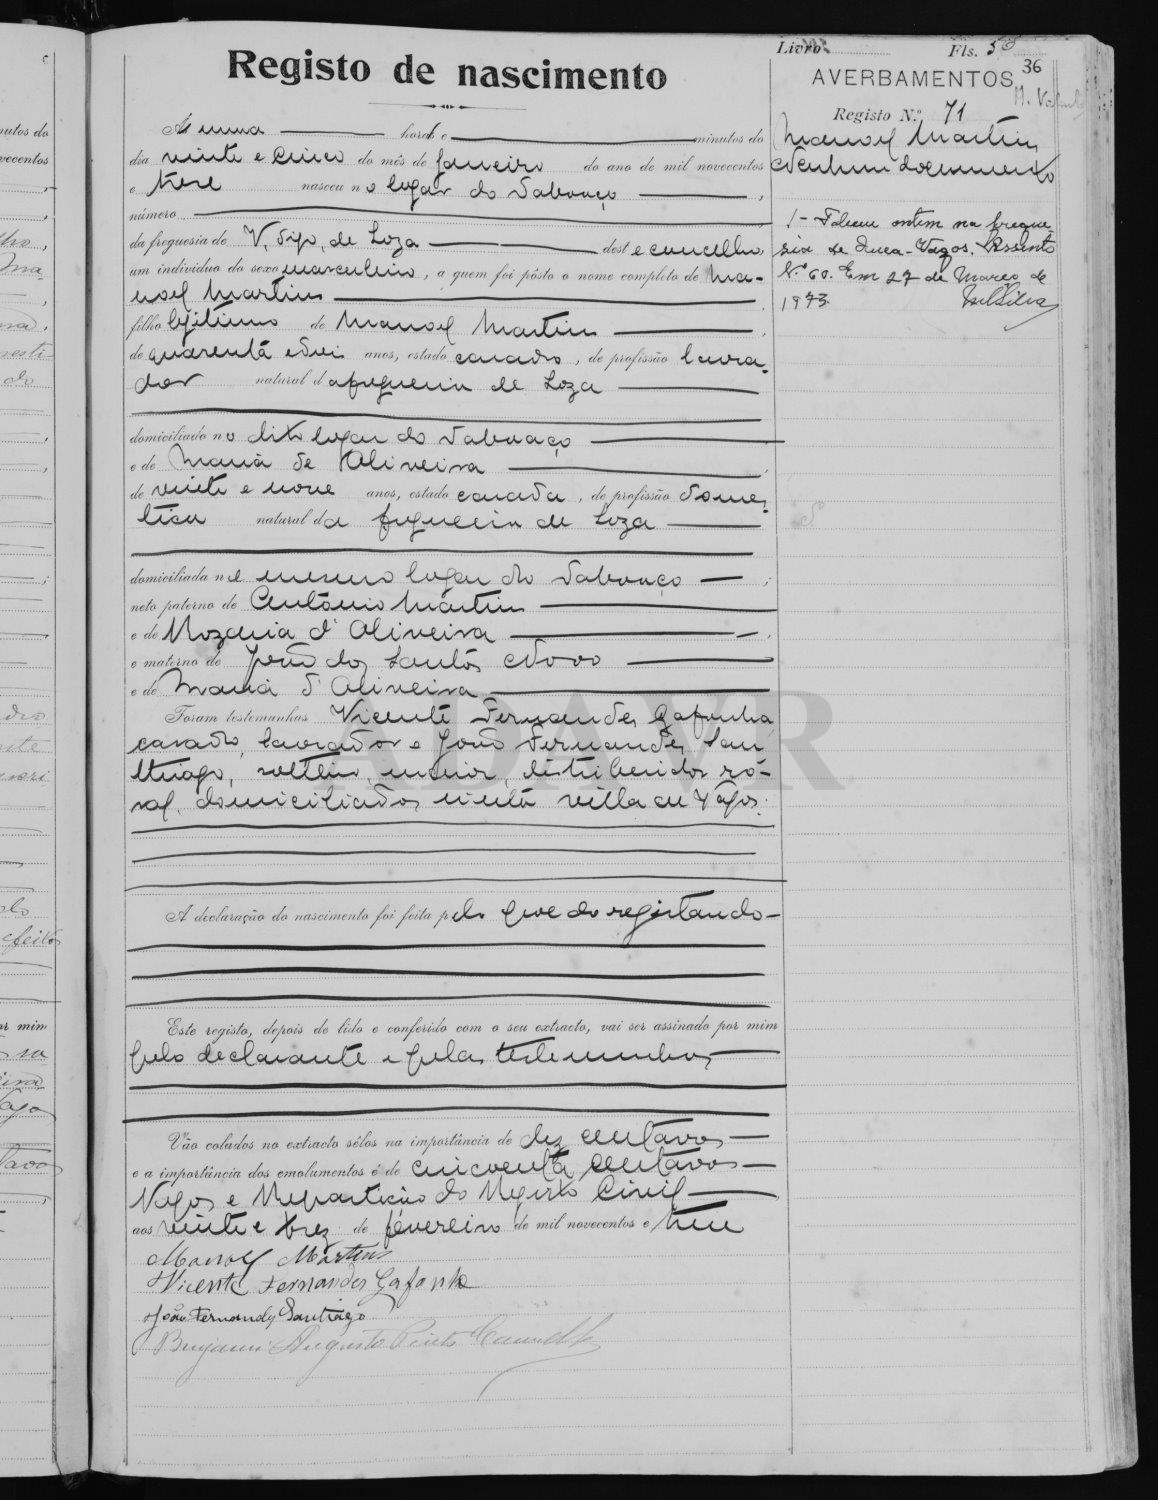 Livro Fls. 36
36
Registo de nascimento
AVERBAMENTOS
Registo N.º 71
Ás uma horas e minutos do
dia vinte e cinco do mês de Janeiro do ano de mil novecentos
e trese nasceu no logar do Tabuaço
número
da freguesia de deste concelho,
um indivíduo do sexo masculino, a quem foi pôsto o nome completo de Ma-
noel Martins
filho legítimo de Manoel Martins
de quarenta e dois anos, estado casado, de profissão lavra-
dor natural da freguesia de Soza
domiciliado no dito logar do Tabuaço
e de Maria de Oliveira
de vinte e nove anos, estado casada, de profissão domes-
tica natural da freguesia de Soza
domiciliada no mesmo logar do Tabuaço
neto paterno de António Martins
e de Rozaria d'Oliveira
e materno de João dos Santos Novo
e de Maria d'Oliveira
Foram testemunhas Vicente Fernandes Gafanha
casado, lavrador e João Fernandes San
thiago, solteiro, maior, distribuidor ru-
ral, domiciliados nesta villa de Vagos.
A declaração do nascimento foi feita pelo pae do registando
Este registo, depois de lido e conferido com o seu extracto, vai ser assinado por mim
pelo declarante e pelas testemunhas
Vão colados no extracto sêlos na importância de dez centavos
e a importância dos emolumentos é de cincoenta centavos
Vagos e Repartição do Registo Civil
aos vinte e trez de fevereiro de mil novecentos e treze
Manoel Martins
Vicente Fernandes Gafanha
João Fernandes Santiago
Benjamim Augusto
Manoel Martins
Nenhum documento
1- Faleceu ontem na fregue-
sia de Vagos. Assento
N.º 60. Em 27 de Março de
1973.
ADAVR